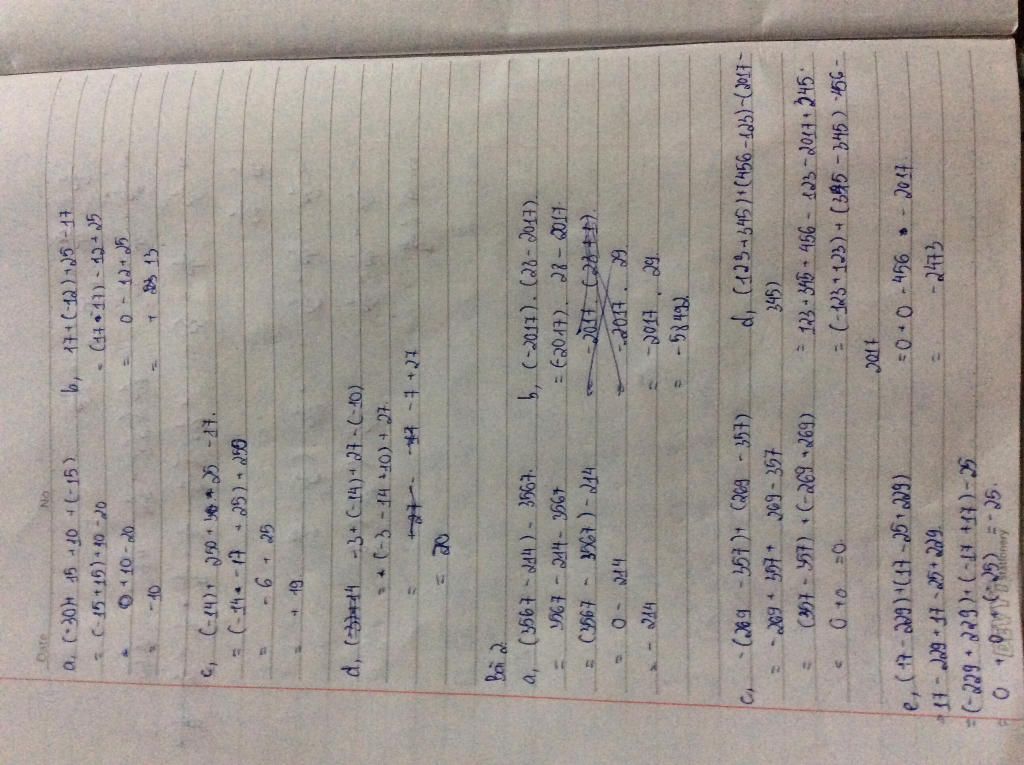 Date No
a, (-30) + 15 + 10 + (-15)
= (-15 + 15) + 10 - 20
= 0 + 10 - 20
= -10
b, 17 + (-12) + 25 - 17
= (17 - 17) - 12 + 25
= 0 - 12 + 25
= + 13
c, (-14) + 250 + 25 - 17.
= (-14 - 17 + 25) + 250
= - 6 + 25
= + 19
d, -3 + (-14) + 27 - (-10)
= (-3 - 14 + 10) + 27.
= - 7 + 27
= 20
Bài 2.
a, (3567 - 214) - 3567.
= 3567 - 214 - 3567
= (3567 - 3567) - 214
= 0 - 214
= - 214
b, (-2017). (28 - 2017)
= (-2017). 28 - 2017.
= -2017 . 29
= -2017 . 29.
= - 58492.
c, - (269 - 357) + (269 - 357)
= - 269 + 357 + 269 - 357
= (357 - 357) + (-269 + 269)
= 0 + 0 = 0.
d, (123 + 345) + (456 - 123) - (2017 -
345)
= 123 + 345 + 456 - 123 - 2017 + 345.
= (-123 + 123) + (345 - 345) - 456 -
2017
= 0 + 0 - 456 - 2017.
= - 2473
e, (17 - 229) + (17 - 25 + 229)
= 17 - 229 + 17 - 25 + 229.
= (-229 + 229) + (-17 + 17) - 25
= 0 + 0 + (-25) = - 25.